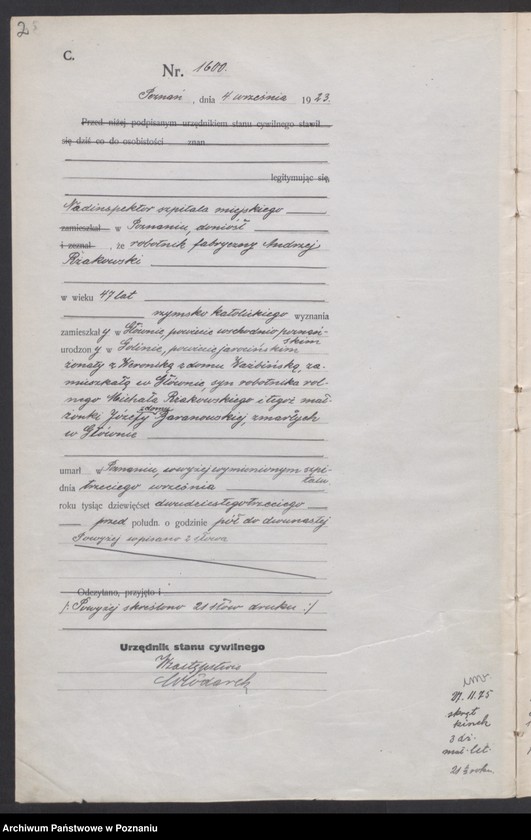 2
C.
Nr. 1600.
Poznań, dnia 4 września 1923.
Przed niżej podpisanym urzędnikiem stanu cywilnego stawił
się dziś co do osobistości znan
legitymując się,
Nadinspektor szpitala miejskiego
zamieszkał w Poznaniu, doniósł
i zeznał, że robotnik fabryczny Andrzej
Rzakowski
w wieku 47 lat
rzymsko katolickiego wyznania
zamieszkały w Głównie, powiecie wschodnio poznań-
skim
urodzony w Golinie, powiecie jarocińskim
żonaty z Weroniką z domu, za-
mieszkałą w Głównie, syn robotnika rol-
nego Michała Rzakowskiego i tegoż mał-
żonki Józefy z domu Baranowskiej, zmarłych
w Głównie
umarł w Poznaniu, w wyżej wymienionym szpi-
talu
dnia trzeciego września
roku tysiąc dziewięćset dwudziestego trzeciego
przed połudn. o godzinie pół do dwunastej
Powyżej wpisano 2 słowa
Odczytano, przyjęto i
/: Powyżej skreślono 21 słów druku :/
Urzędnik stanu cywilnego
W zastępstwie
Włodarek
27.11.75
3 dz.
21 ½ roku
Archiwum Państwowe w Poznaniu